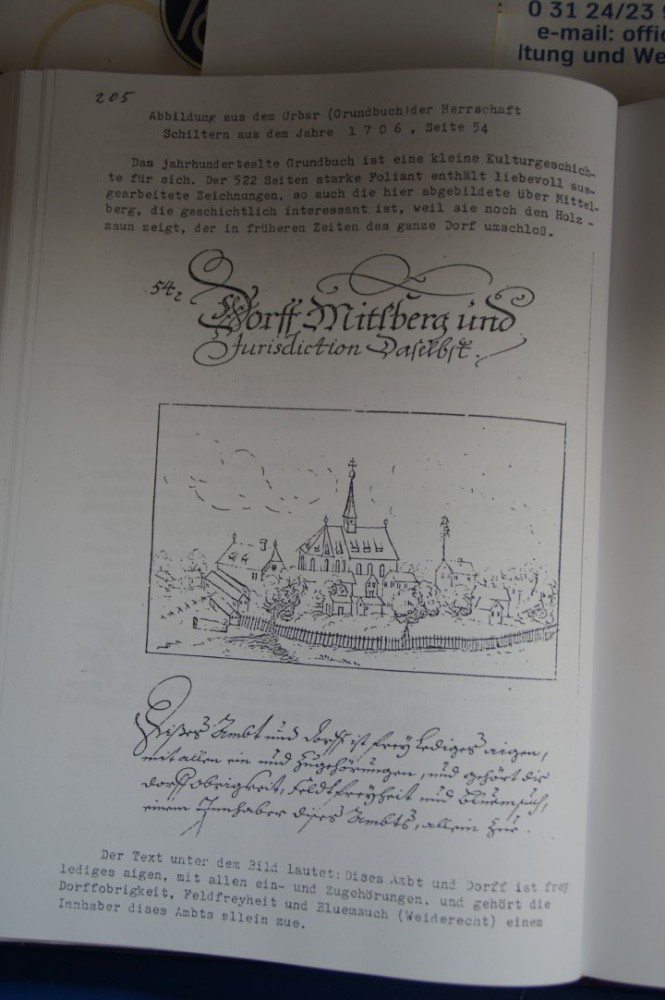 0 31 24/23
e-mail: offic
ltung und We
205
Abbildung aus dem Urbar (Grundbuch)der Herrschaft
Schiltern aus dem Jahre 1 7 0 6 , Seite 54
Das jahrhundertealte Grundbuch ist eine kleine Kulturgeschich-
te für sich. Der 522 Seiten starke Foliant enthält liebevoll aus-
gearbeitete Zeichnungen, so auch die hier abgebildete über Mittel-
berg, die geschichtlich interessant ist, weil sie noch den Holz -
zaun zeigt, der in früheren Zeiten das ganze Dorf umschloß.
54
Dorff Mitlberg und
Jurisdiction Daselbst.
Dises Ambt und dorff ist frey lediges aigen,
mit allen ein und Zugehörungen, und gehört die
dorffobrigkeit, Feldtfreyheit und bluemsuch,
einem Innhaber dises Ambts, allein zue.
Der Text unter dem Bild lautet: Dises Ambt und Dorff ist frey
lediges aigen, mit allen ein- und Zugehörungen. und gehört die
Dorffobrigkeit, Feldfreyheit und Bluemsuch (Weiderecht) einem
Innhaber dises Ambts allein zue.